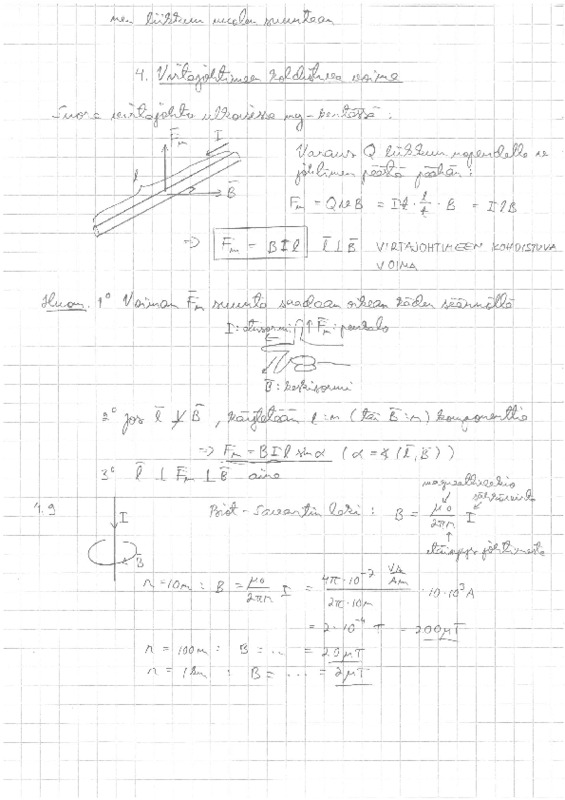 men liikkuu suuntaan
4. Virtajohtimeen kohdistuva voima
Suora virtajohto ulkoisessa mg-kentässä:
F̄m I
l
B̄
Varaus Q liikkuu nopeudella v
johtimen päästä päähän:
Fm = QvB = It · l/t · B = IlB
=> Fm = BIl l̄ ⊥ B̄ VIRTAJOHTIMEEN KOHDISTUVA
VOIMA
Huom. 1° Voiman F̄m suunta saadaan oikean käden säännöllä
I: etusormi F̄m: peukalo
B̄: keskisormi
2° jos l̄ ⊥̸ B̄, käytetään l:n (tai B̄:n) komponenttia
=> Fm = BIl sin α (α = ∢(l̄, B̄))
3° l̄ ⊥ F̄m ⊥ B̄ aina
4.9
I
B̄
magneettivakio
sähkövirta
Biot-Savartin laki: B = μ₀/2πr I
etäisyys johtimesta
r = 10m : B = μ₀/2πr I = 4π·10⁻⁷ Vs/Am / 2π·10m · 10·10³A
= 2·10⁻⁴ T = 200μT
r = 100m : B = ... = 20μT
r = 1km : B = ... = 2μT